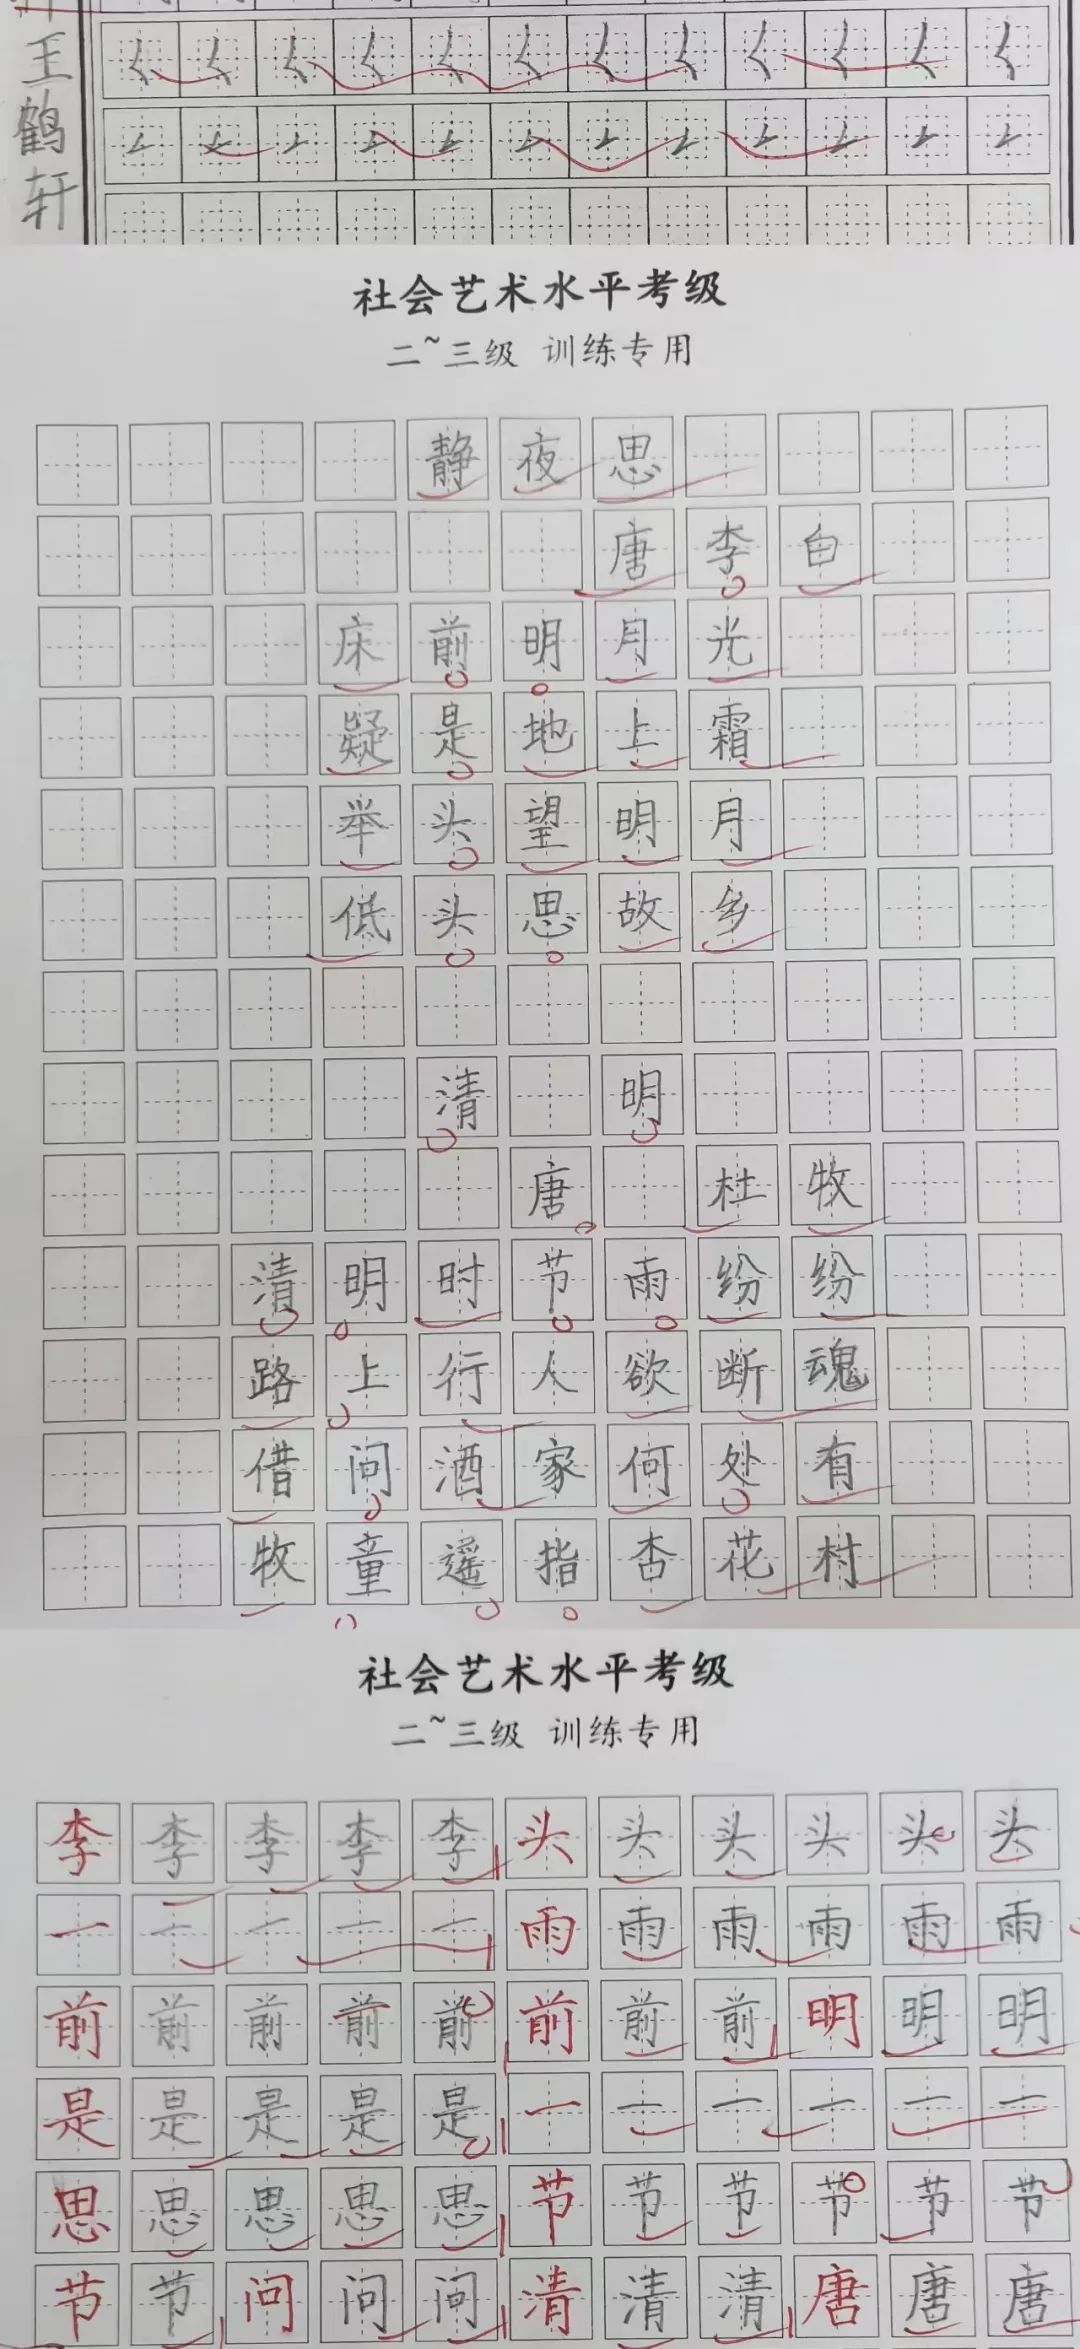 王鹤轩
社会艺术水平考级
二~三级 训练专用
静夜思
唐李白
床前明月光
疑是地上霜
举头望明月
低头思故乡
清明
唐杜牧
清明时节雨纷纷
路上行人欲断魂
借问酒家何处有
牧童遥指杏花村
社会艺术水平考级
二~三级 训练专用
李李李李李头头头头头头
一一一一一雨雨雨雨雨雨
前前前前前前前前明明明
是是是是是一一一一一一
思思思思思节节节节节节
节节问问问清清清唐唐唐